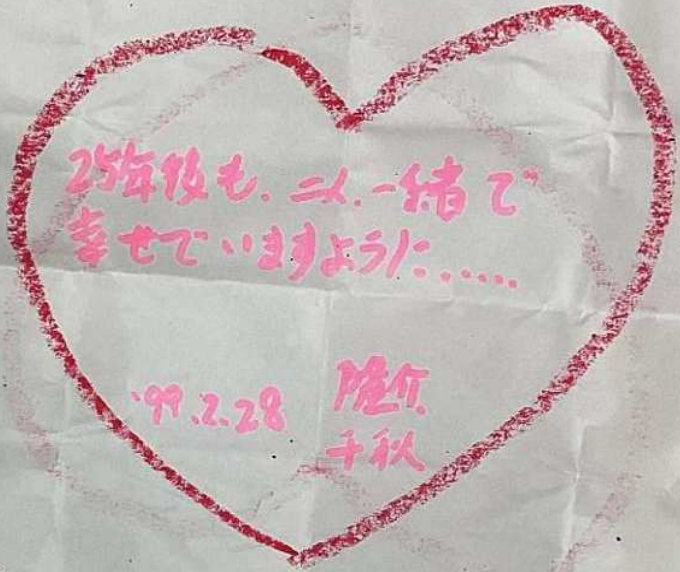 25年後も、二人、一緒で
幸せでいますように……
'99.2.28 隆介
千秋